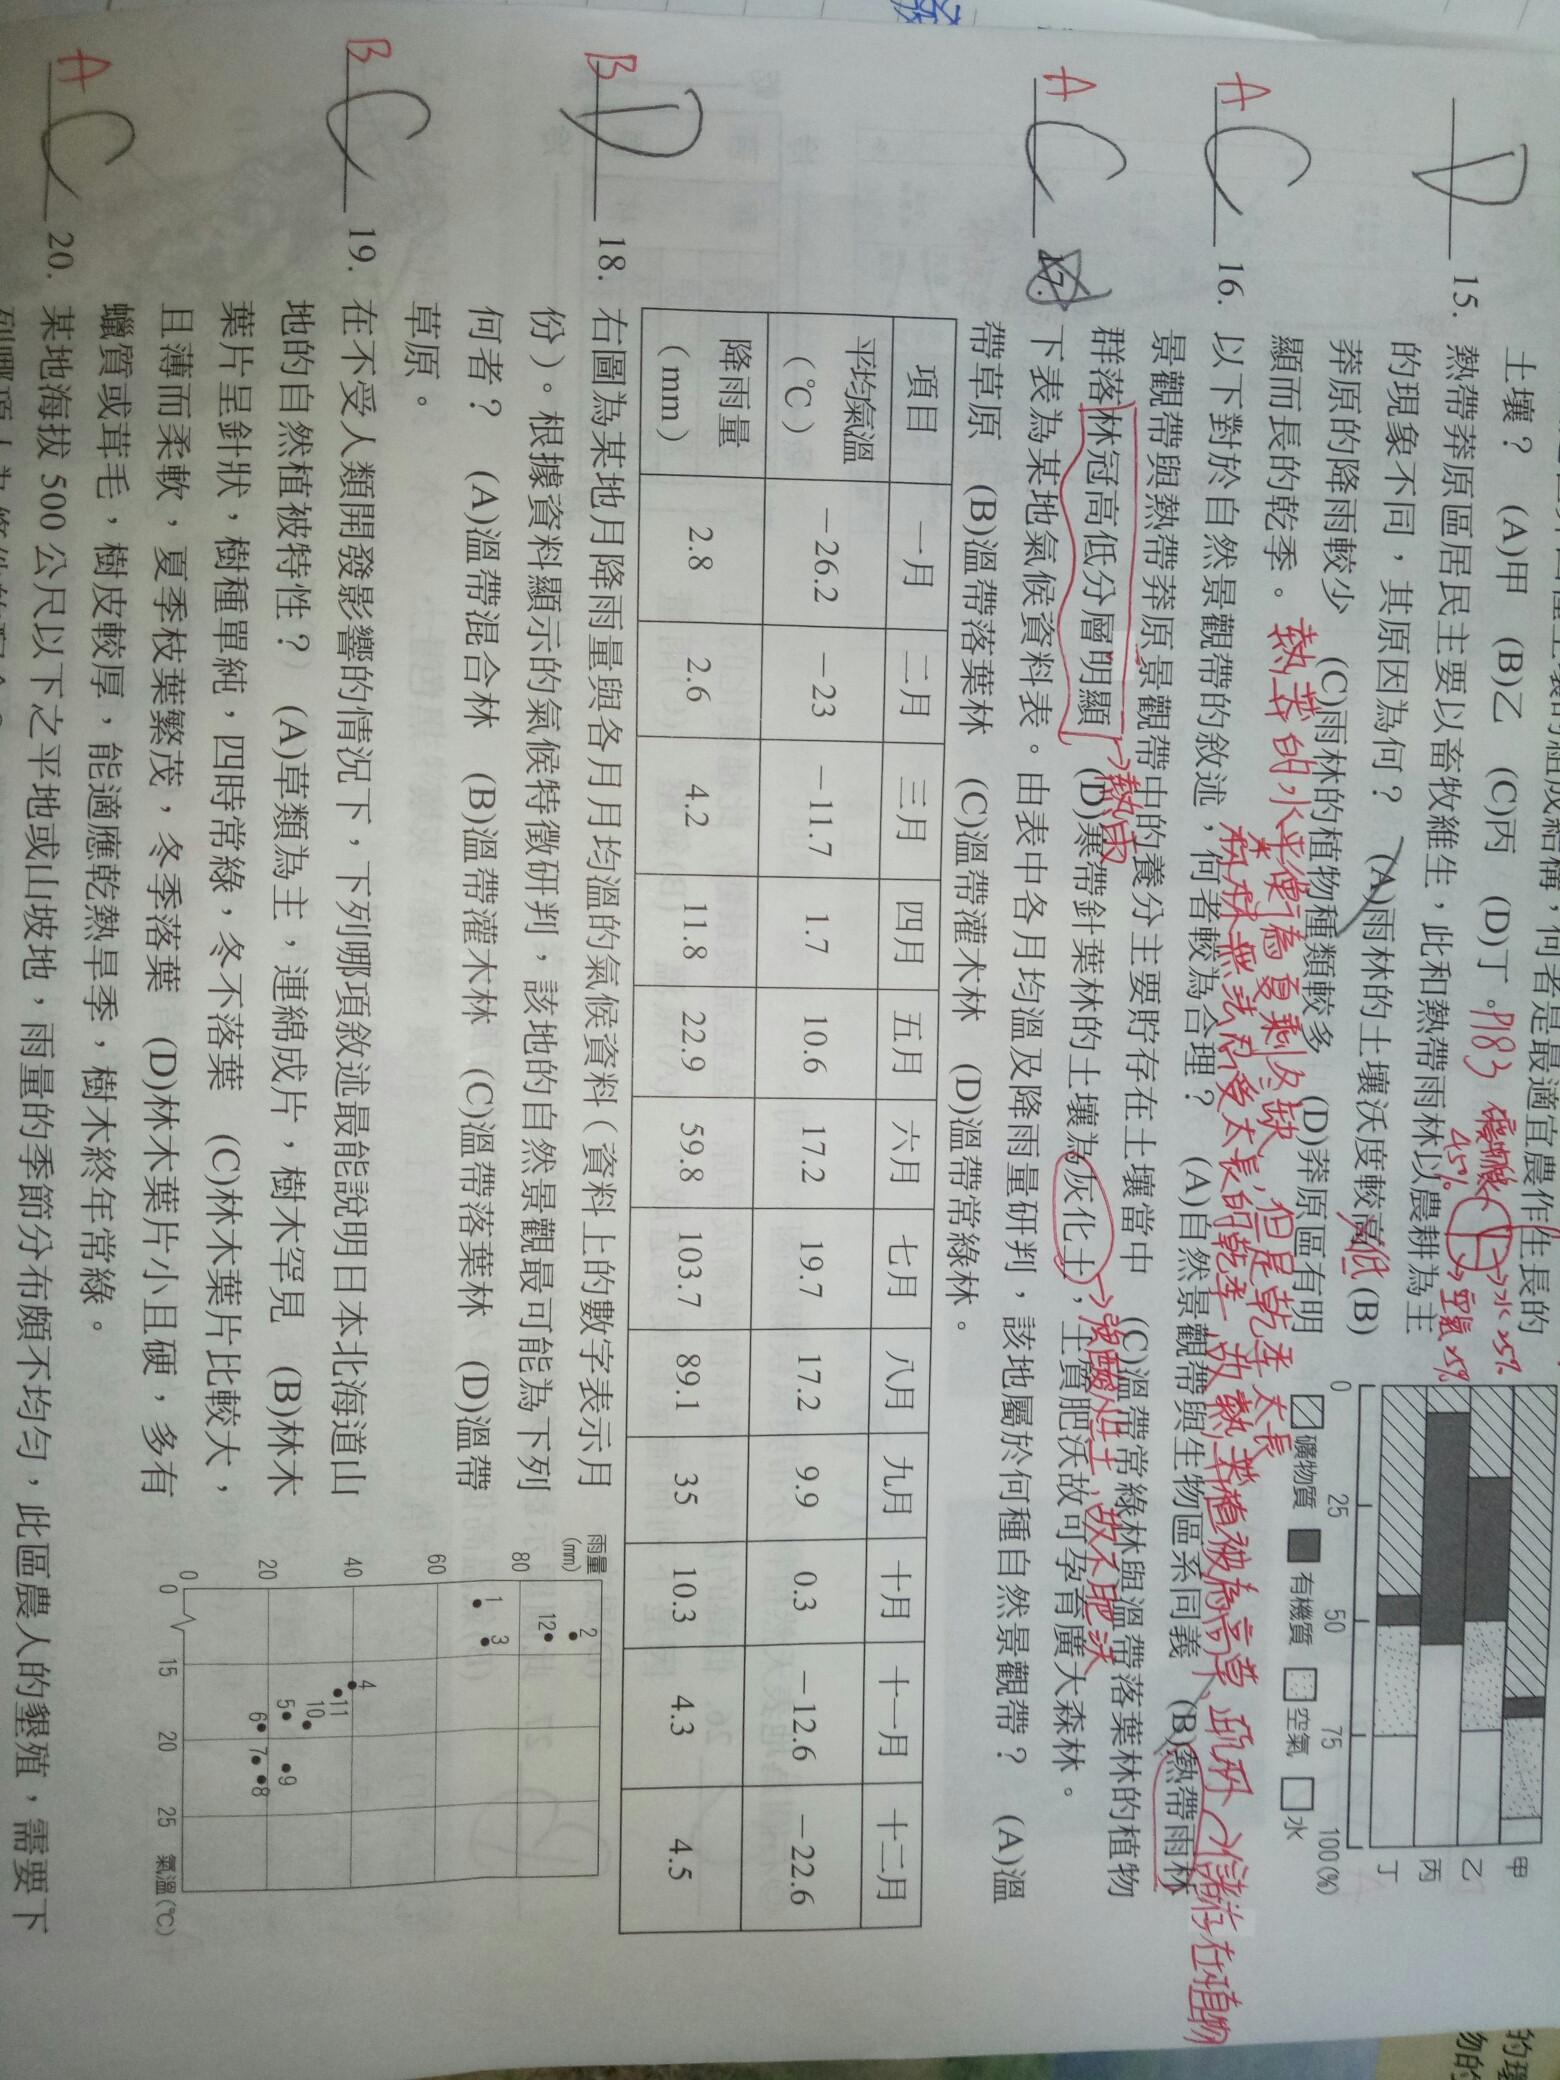 土壤？　(A)甲　(B)乙　(C)丙　(D)丁。P183
D 15. 熱帶莽原區居民主要以畜牧維生，此和熱帶雨林以農耕為主
的現象不同，其原因為何？　(A)雨林的土壤沃度較高低(B)
莽原的降雨較少　(C)雨林的植物種類較多　(D)莽原區有明
顯而長的乾季。
礦物質 45%
水25%
空氣25%
甲
乙
丙
丁
0 25 50 75 100(%)
礦物質 有機質 空氣 水
熱莽的水平衡為夏剩冬缺，但是乾季太長
林木無法忍受太長的乾季，故熱莽植被為高草
A C 16. 以下對於自然景觀帶的敘述，何者較為合理？　(A)自然景觀帶與生物區系同義　(B)熱帶雨林
儲存在植物
景觀帶與熱帶莽原景觀帶中的養分主要貯存在土壤當中　(C)溫帶常綠林與溫帶落葉林的植物
群落林冠高低分層明顯　(D)寒帶針葉林的土壤為灰化土，土質肥沃故可孕育廣大森林。
→熱雨
→強酸性土，故不肥沃
A C 17. 下表為某地氣候資料表。由表中各月均溫及降雨量研判，該地屬於何種自然景觀帶？　(A)溫
帶草原　(B)溫帶落葉林　(C)溫帶灌木林　(D)溫帶常綠林。
項目 一月 二月 三月 四月 五月 六月 七月 八月 九月 十月 十一月 十二月
平均氣溫（℃） −26.2 −23 −11.7 1.7 10.6 17.2 19.7 17.2 9.9 0.3 −12.6 −22.6
降雨量（mm） 2.8 2.6 4.2 11.8 22.9 59.8 103.7 89.1 35 10.3 4.3 4.5
B D 18. 右圖為某地月降雨量與各月月均溫的氣候資料（資料上的數字表示月
份）。根據資料顯示的氣候特徵研判，該地的自然景觀最可能為下列
何者？　(A)溫帶混合林　(B)溫帶灌木林　(C)溫帶落葉林　(D)溫帶
草原。
雨量(mm)
80
60
40
20
0
0 15 20 25 氣溫(℃)
2
12
1
3
4
11
10
5
6
9
7
8
B C 19. 在不受人類開發影響的情況下，下列哪項敘述最能說明日本北海道山
地的自然植被特性？　(A)草類為主，連綿成片，樹木罕見　(B)林木
葉片呈針狀，樹種單純，四時常綠，冬不落葉　(C)林木葉片比較大，
且薄而柔軟，夏季枝葉繁茂，冬季落葉　(D)林木葉片小且硬，多有
蠟質或茸毛，樹皮較厚，能適應乾熱旱季，樹木終年常綠。
A C 20. 某地海拔 500 公尺以下之平地或山坡地，雨量的季節分布頗不均勻，此區農人的墾殖，需要下